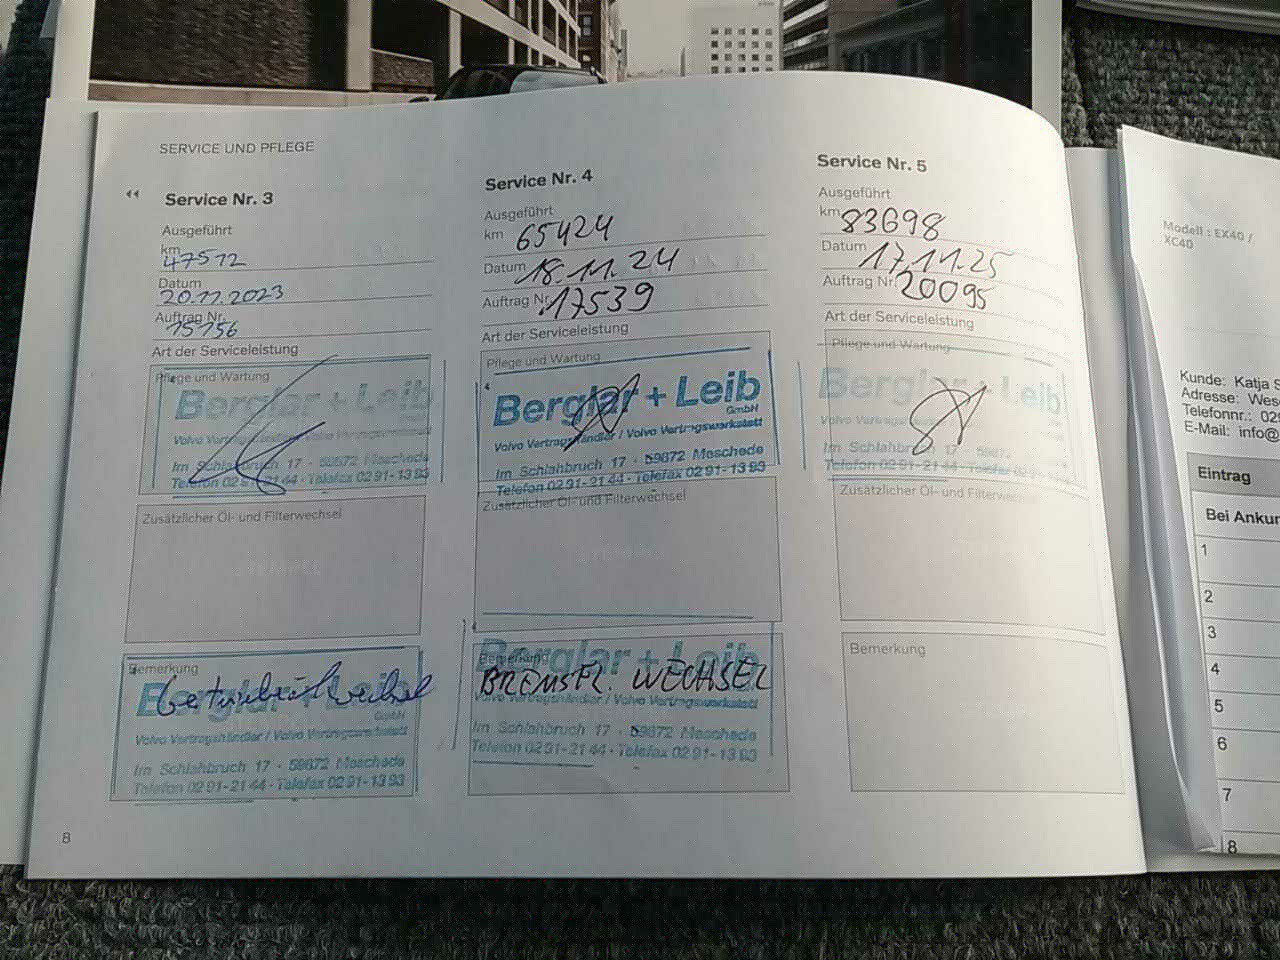 SERVICE UND PFLEGE
Service Nr. 3
Ausgeführt
km 47512
Datum 20.11.2023
Auftrag Nr. 15156
Art der Serviceleistung
Pflege und Wartung
Berglar + Leib
Volvo Vertragshändler / Volvo Vertragswerkstatt
Im Schlahbruch 17 · 59872 Meschede
Telefon 02 91-21 44 · Telefax 02 91-13 93
Zusätzlicher Öl- und Filterwechsel
STEMPEL
Bemerkung
Berglar + Leib
GmbH
Volvo Vertragshändler / Volvo Vertragswerkstatt
Im Schlahbruch 17 · 59872 Meschede
Telefon 02 91-21 44 · Telefax 02 91-13 93
Service Nr. 4
Ausgeführt
km 65424
Datum 18.11.24
Auftrag Nr. 17539
Art der Serviceleistung
Pflege und Wartung
Berglar + Leib
GmbH
Volvo Vertragshändler / Volvo Vertragswerkstatt
Im Schlahbruch 17 · 59872 Meschede
Telefon 02 91-21 44 · Telefax 02 91-13 93
Zusätzlicher Öl- und Filterwechsel
STEMPEL
Bemerkung
Berglar + Leib
BREMSFL. WECHSEL
Volvo Vertragshändler / Volvo Vertragswerkstatt
Im Schlahbruch 17 · 59872 Meschede
Telefon 02 91-21 44 · Telefax 02 91-13 93
Service Nr. 5
Ausgeführt
km 83698
Datum 17.11.25
Auftrag Nr. 20095
Art der Serviceleistung
Pflege und Wartung
Berglar + Leib
Im Schlahbruch 17 · 59872
Telefon 02 91-21 44 · Telefax 02 91-13
Zusätzlicher Öl- und Filterwechsel
STEMPEL
Bemerkung
STEMPEL
8
Modell : EX40 /
XC40
Kunde: Katja S
Adresse: Wes
Telefonnr.: 02
E-Mail: info@
Eintrag
Bei Ankun
1
2
3
4
5
6
7
8